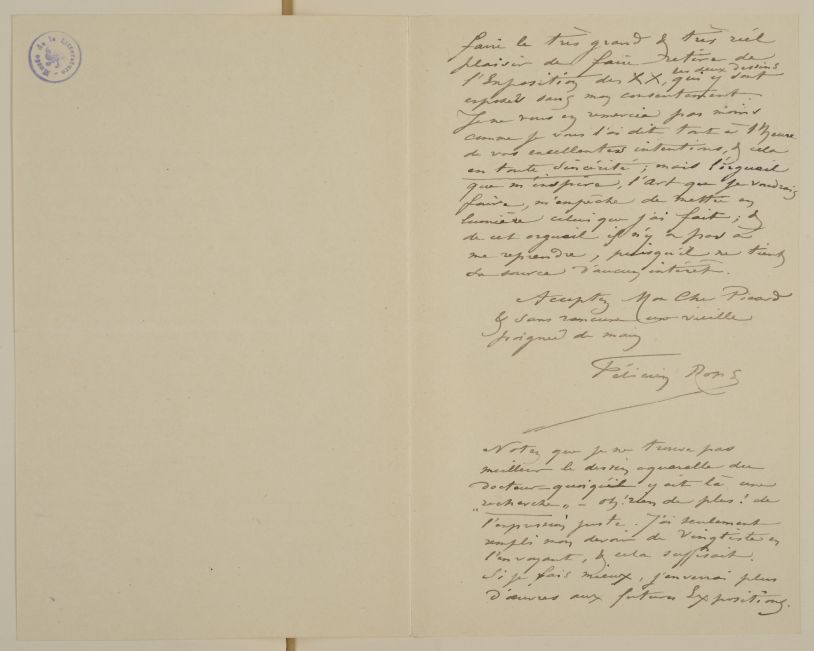 Musée de la Littérature
faire le très grand & très réel
plaisir de faire retirer de
les deux dessins
l'Exposition des XX, qui y sont
exposés sans mon consentement.
Je ne vous en remercie pas moins
comme je vous l'ai dit tout à l'heure
de vos excellentes intentions, & cela
en toute sincérité ; mais l'orgueil
que m'inspire, l'art que je voudrais
faire, m'empêche de mettre en
lumière celui que j'ai fait ; &
de cet orgueil il n'y a pas à
me reprendre, puisqu'il ne tient
sa source d'aucun intérêt.
Acceptez Mon Cher Picard
& sans rancune une vieille
poignée de main
Félicien Rops
Notez que je ne trouve pas
meilleur le dessin aquarelle du
Docteur – quoiqu'il y ait là une
„recherche„ – oh! rien de plus! de
l'expression juste. J'ai seulement
rempli mon devoir de Vingtiste en
l'envoyant, & cela suffisait.
Si je fais mieux, j'enverrai plus
d'œuvres aux futures Expositions.